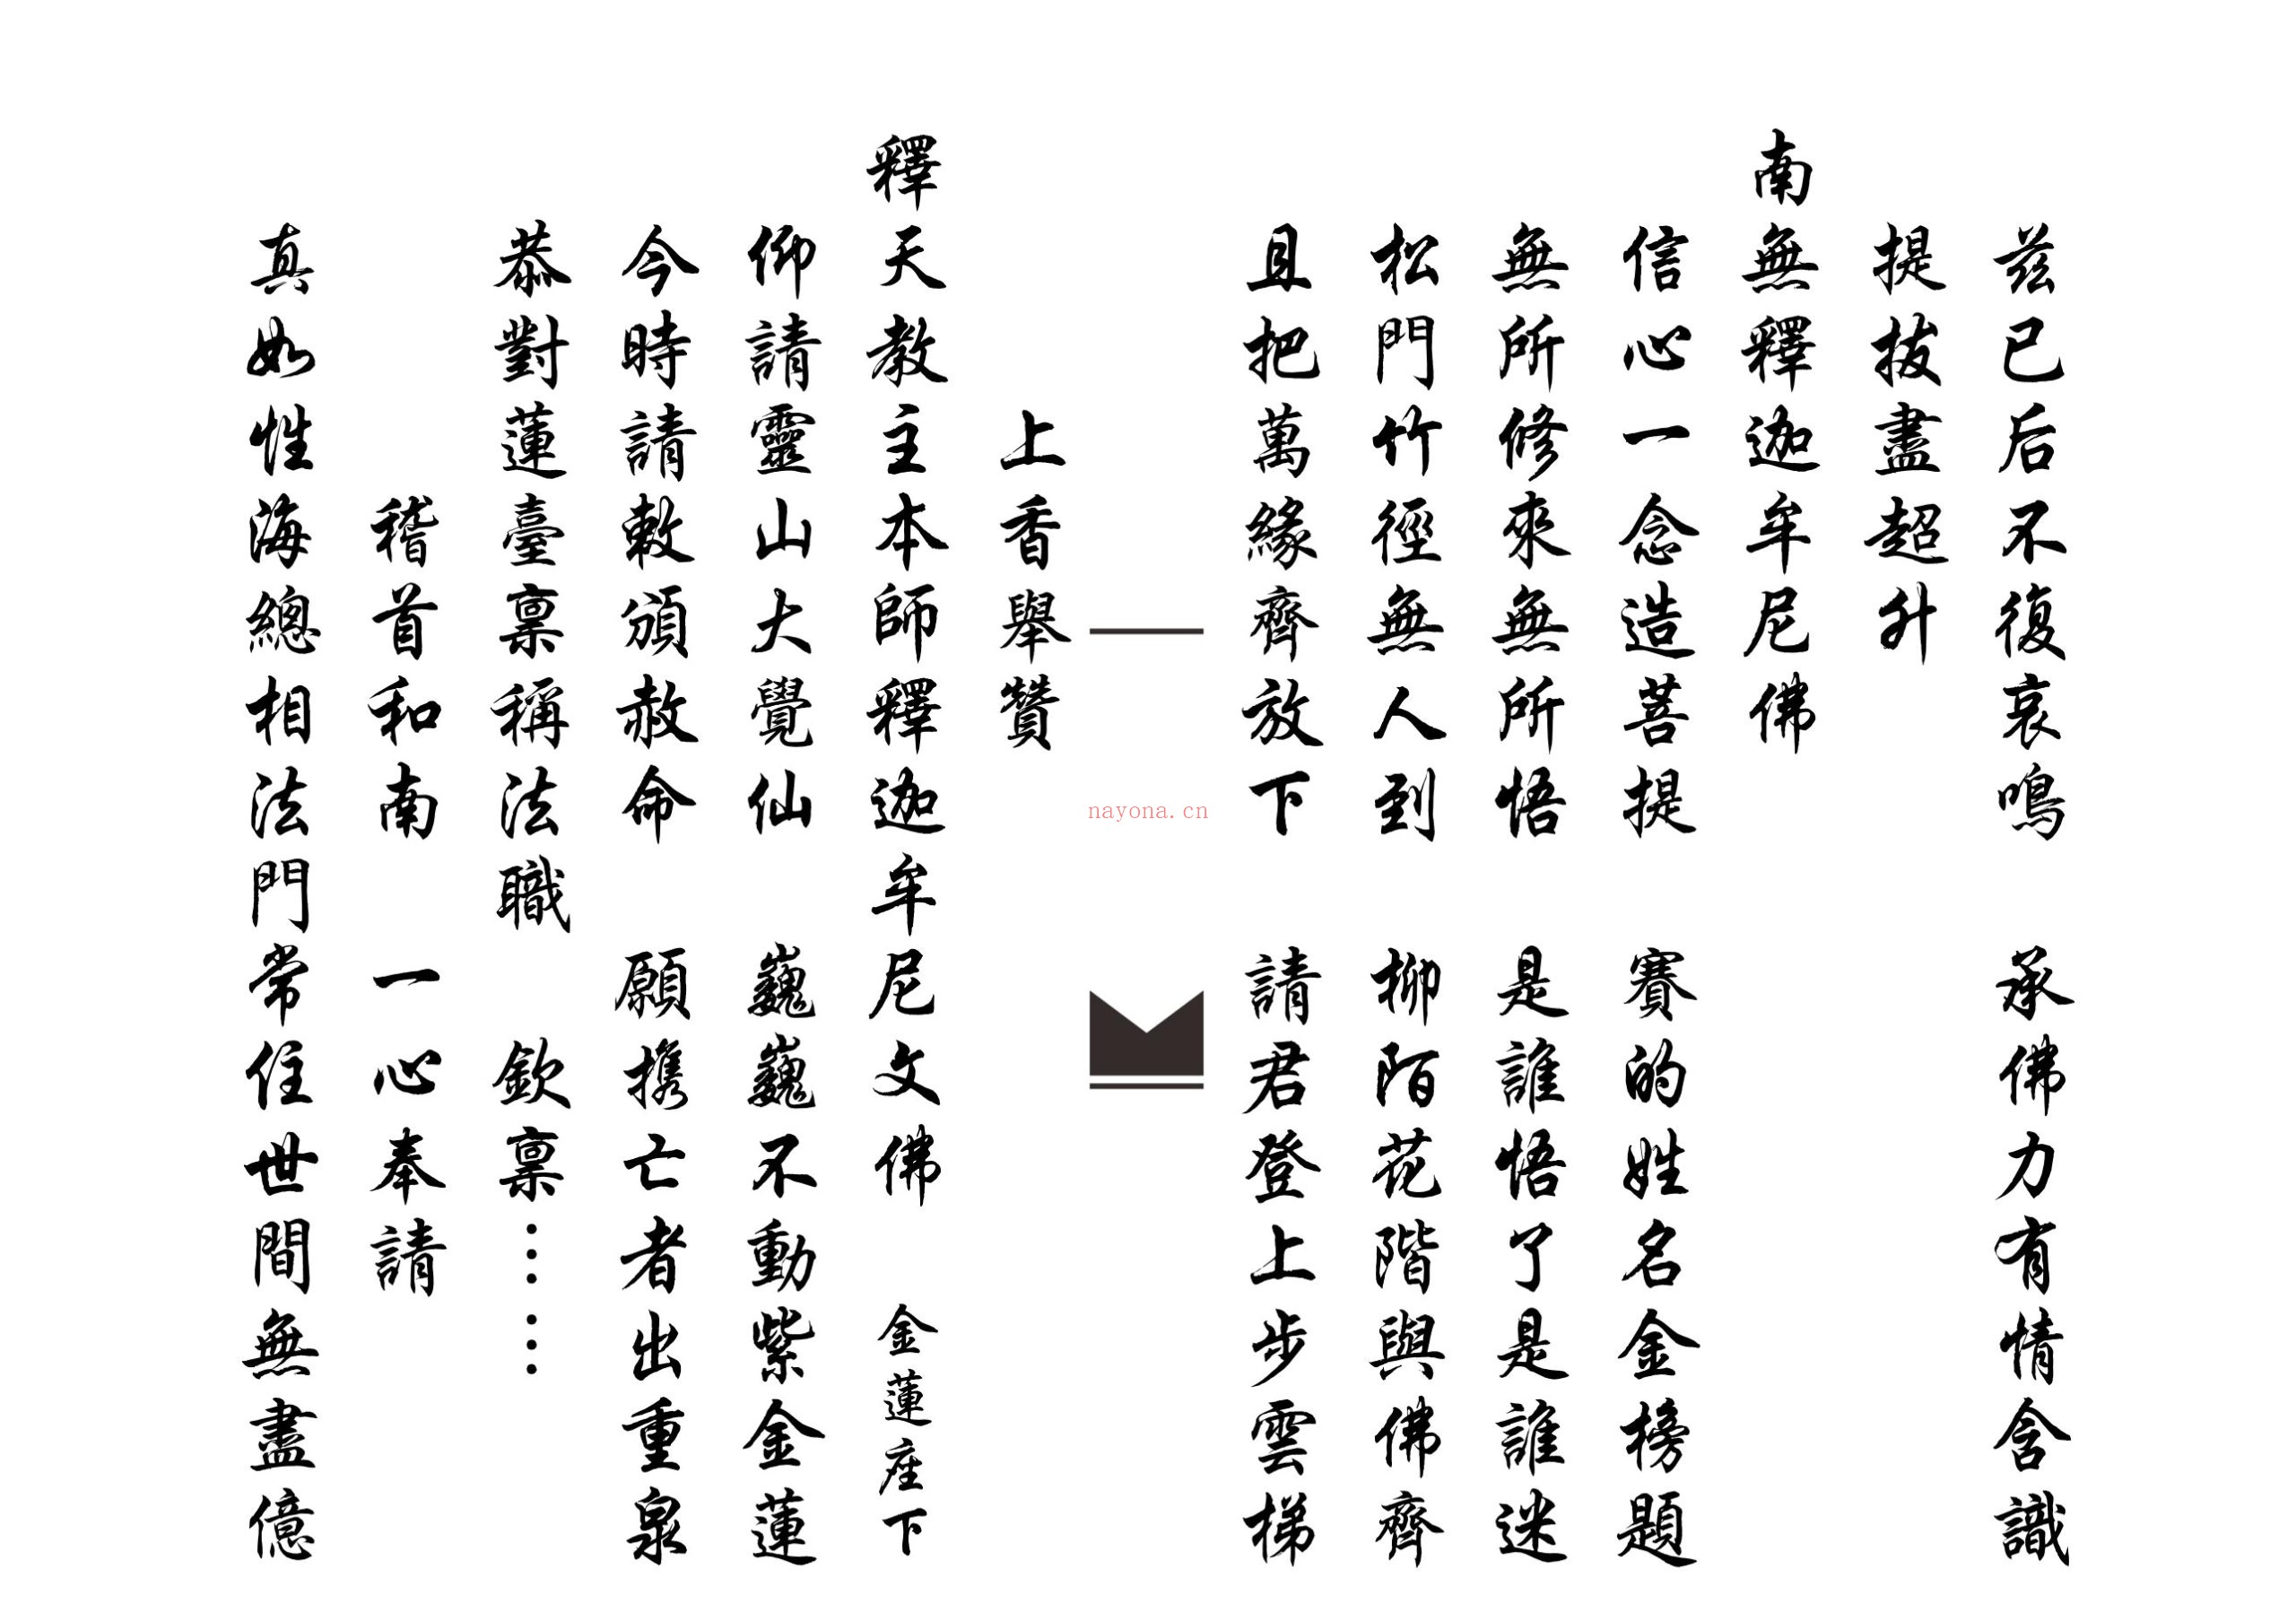 兹已后不復哀鳴　承佛力有情含識
提拔盡超升
南無釋迦牟尼佛
信心一念造菩提　賽的姓名金榜題
無所修來無所悟　是誰悟了是誰迷
松門竹徑無人到　柳陌花階與佛齊
且把萬緣齊放下　請君登上步雲梯
nayona.cn
上香舉贊
釋天教主本師釋迦牟尼文佛　金蓮座下
仰請靈山大覺仙　巍巍不動紫金蓮
今時請敕頒赦命　願攜亡者出重泉
恭對蓮臺稟稱法職　欽稟……
稽首和南　一心奉請
真如性海總相法門常住世間無盡億